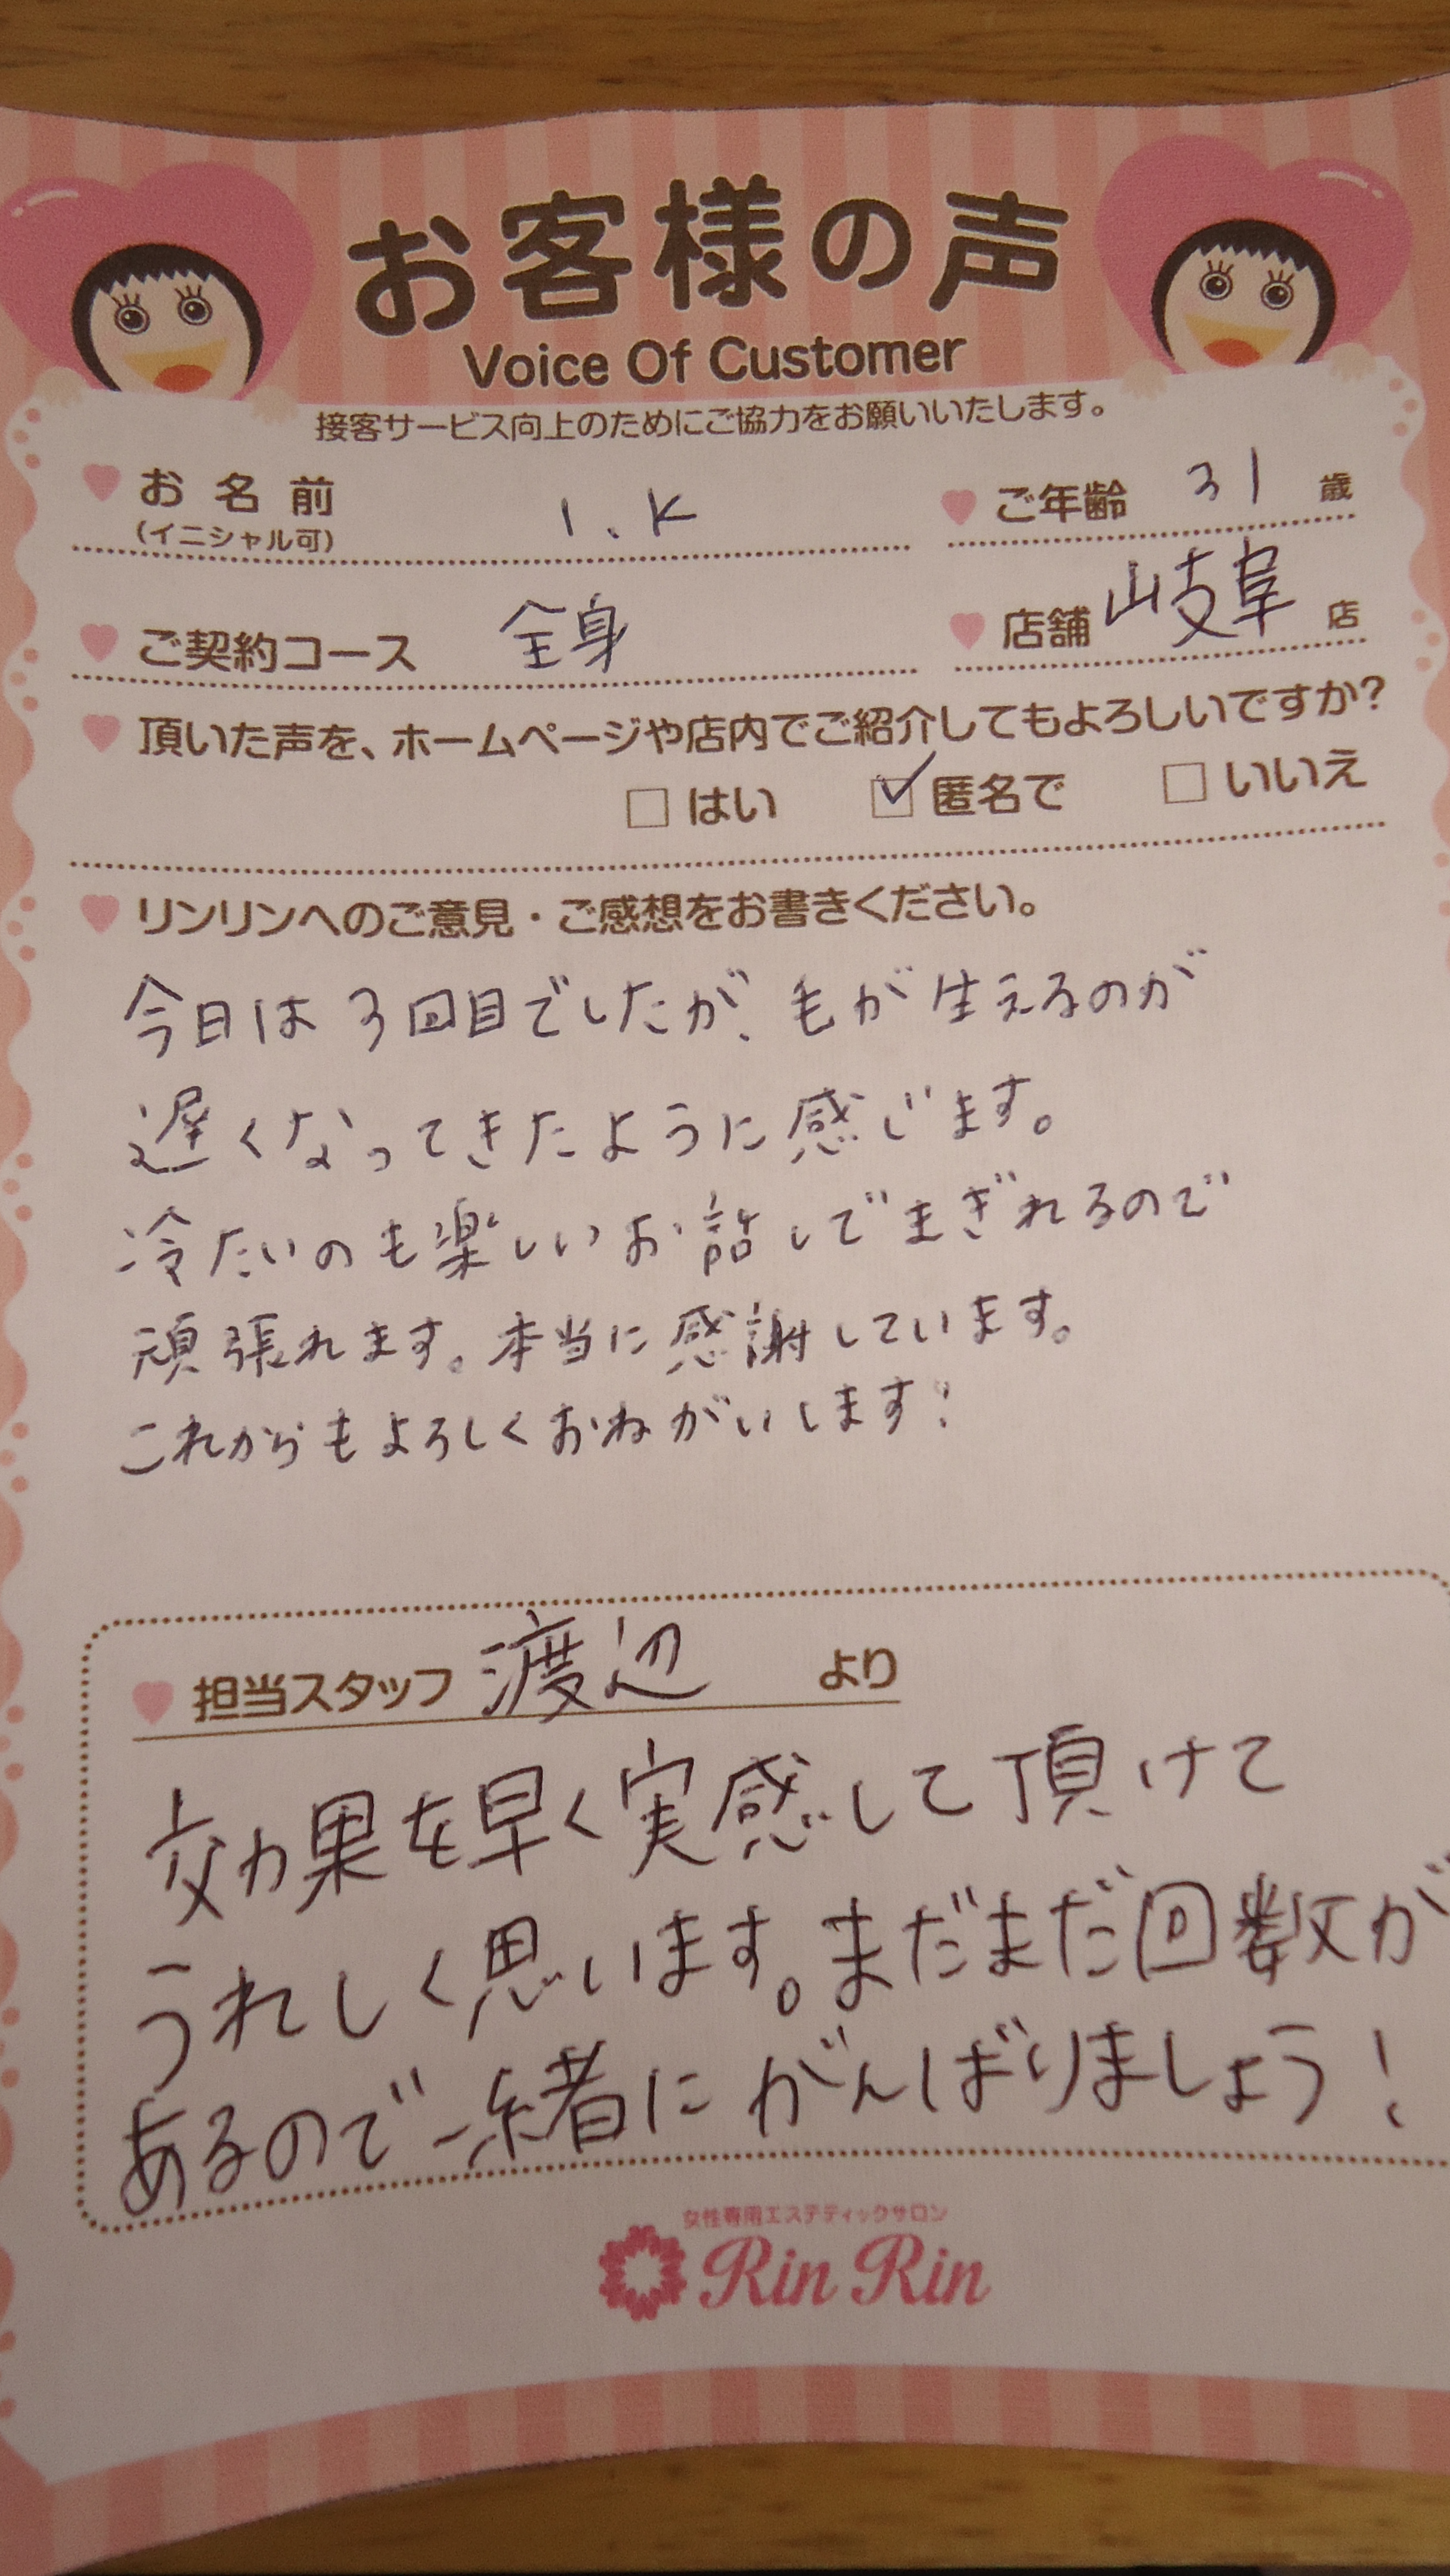 お客様の声
Voice Of Customer
接客サービス向上のためにご協力をお願いいたします。
お名前 I.K ご年齢 31 歳
(イニシャル可)
ご契約コース 全身 店舗 岐阜 店
頂いた声を、ホームページや店内でご紹介してもよろしいですか?
□はい ☑匿名で □いいえ
リンリンへのご意見・ご感想をお書きください。
今日は3回目でしたが、毛が生えるのが
遅くなってきたように感じます。
冷たいのも楽しいお話しでまぎれるので
頑張れます。本当に感謝しています。
これからもよろしくおねがいします!
担当スタッフ 渡辺 より
効果を早く実感して頂けて
うれしく思います。まだまだ回数が
あるので一緒にがんばりましょう!
女性専用エステティックサロン
Rin Rin